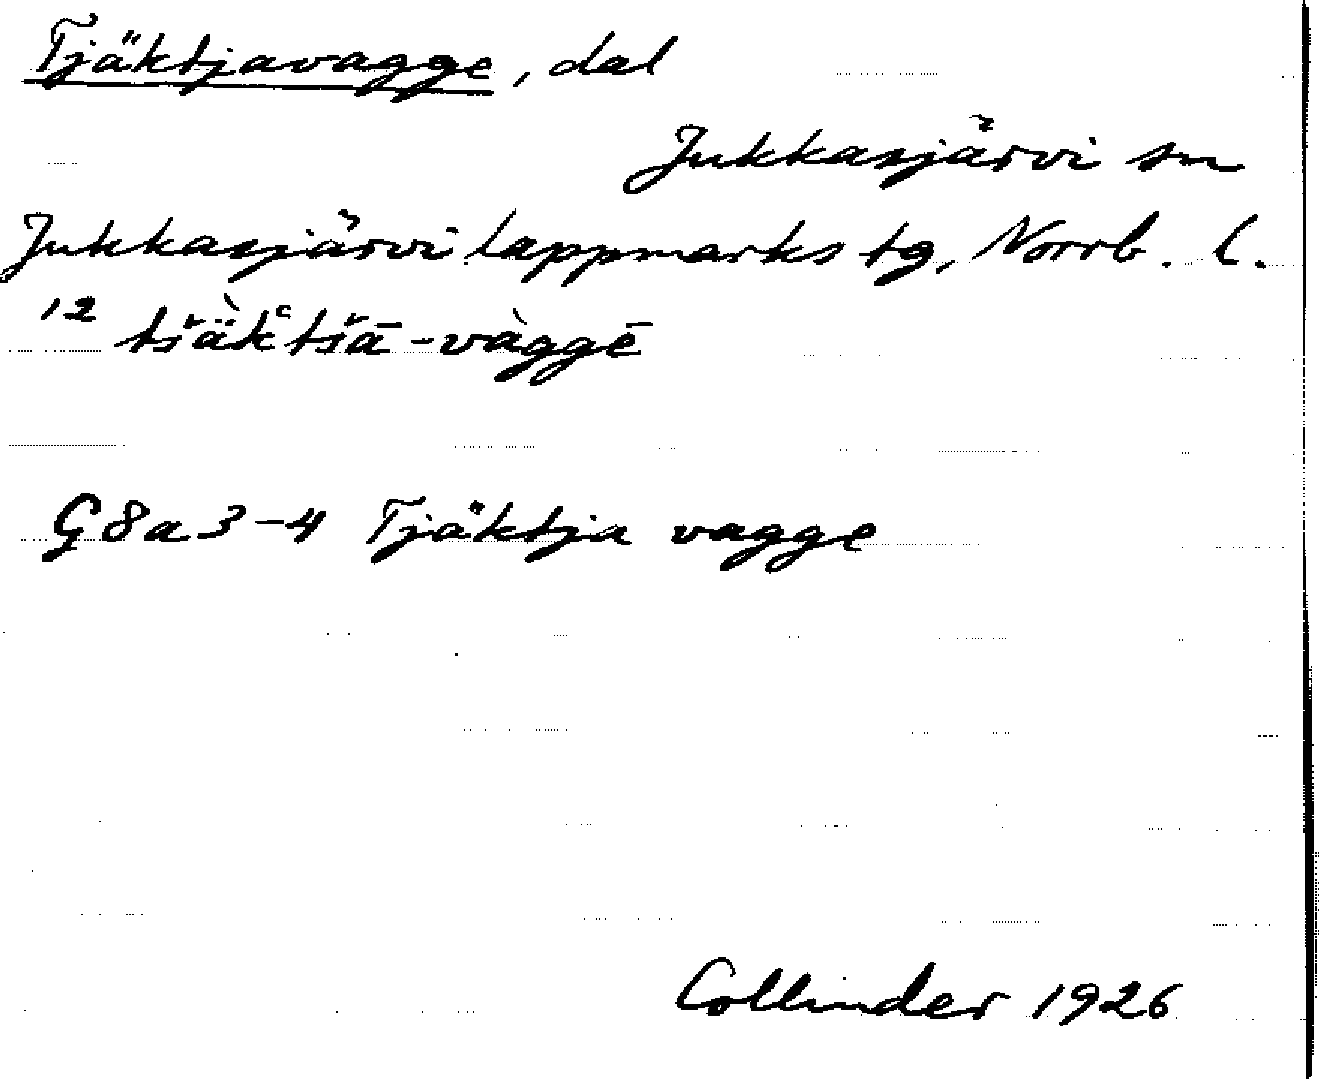 Tjäktjavagge, dal
Jukkasjärvi sn
Jukkasjärvi lappmarks tg, Norrb. l.
12 tšä̀k̔tšā-vàggē
G8a3-4 Tjäktja vagge
Collinder 1926